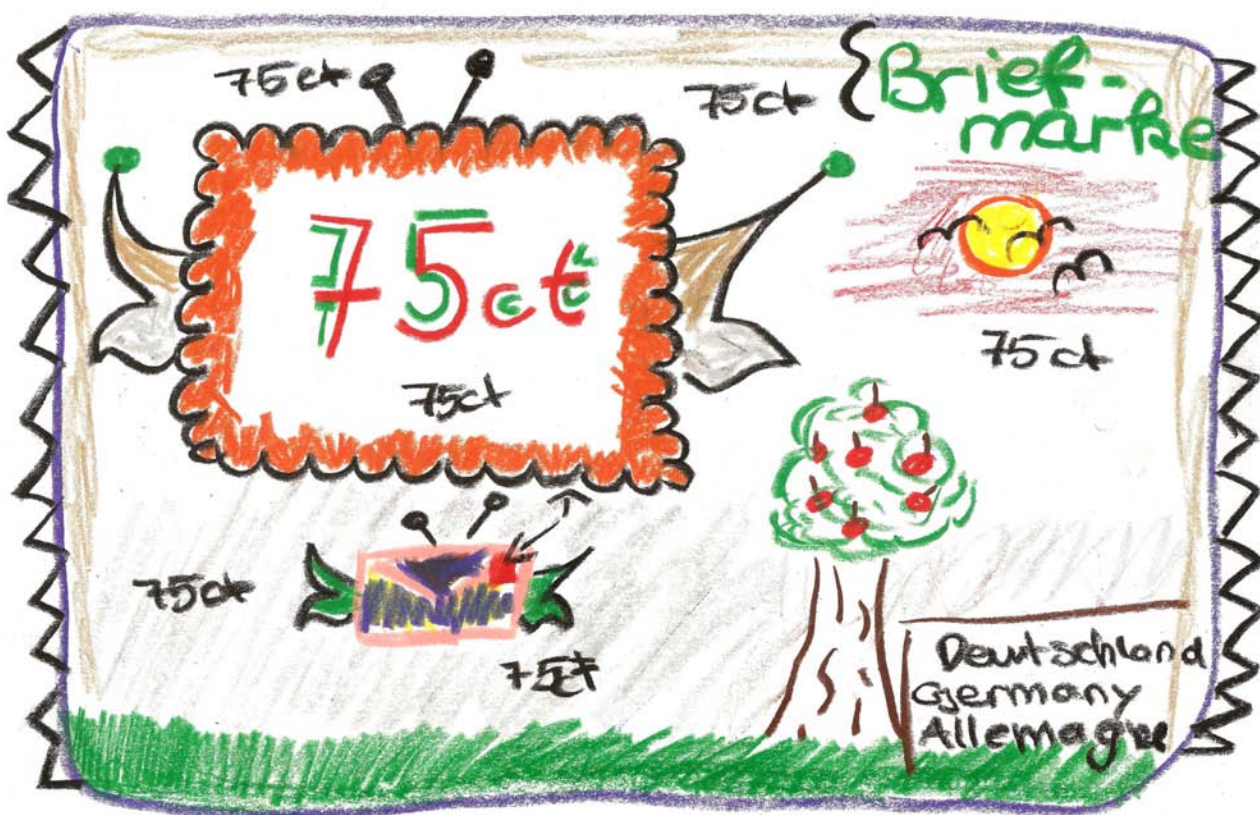 75ct
75ct
Brief-
marke
75ct
75ct
75ct
75ct
75ct
Deutschland
Germany
Allemagne